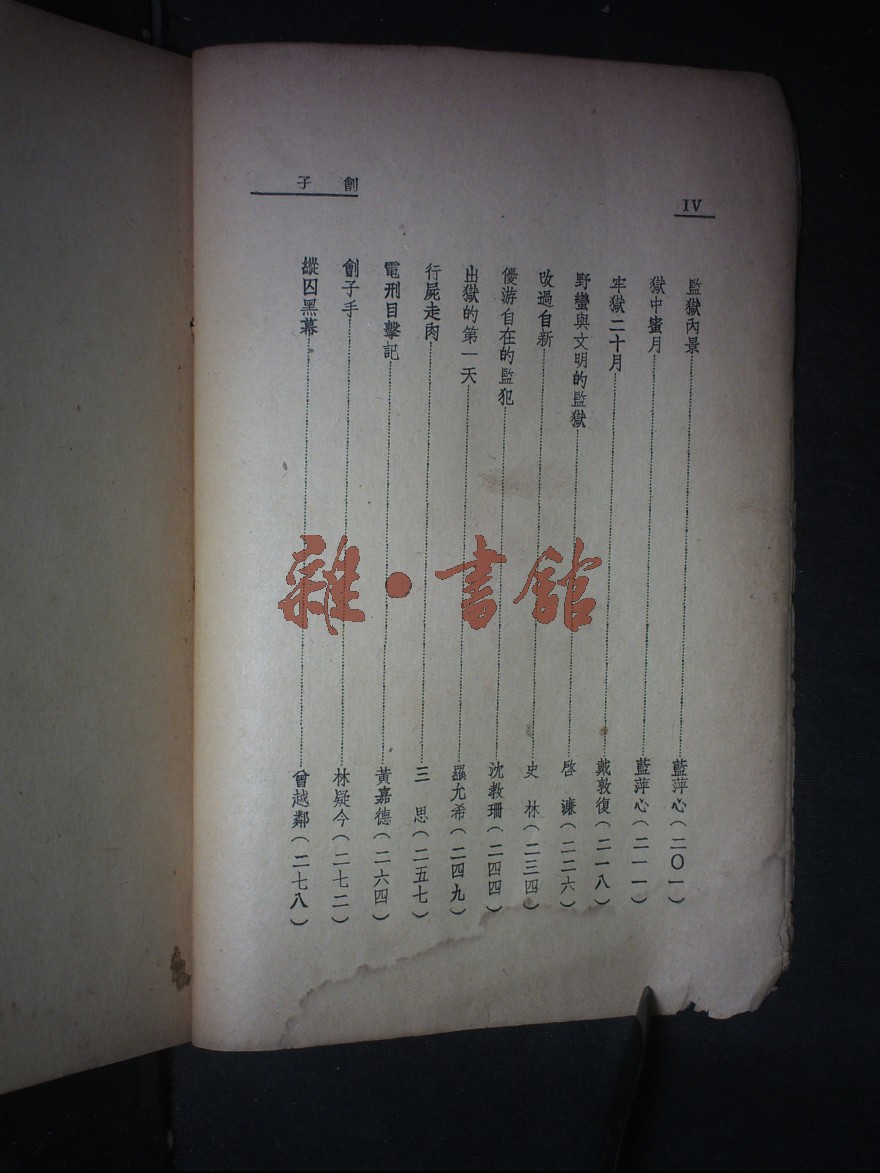 IV
劊子
監獄內景 藍萍心(二〇一)
獄中蜜月 藍萍心(二一一)
牢獄二十月 戴敦復(二一八)
野蠻與文明的監獄 啓濂(二二六)
改過自新 史林(二三四)
優游自在的監犯 沈教珊(二四四)
出獄的第一天 羅允希(二四九)
行屍走肉 三思(二五七)
電刑目擊記 黃嘉德(二六四)
劊子手 林疑今(二七二)
縱囚黑幕 曾越鄰(二七八)
雜·書館